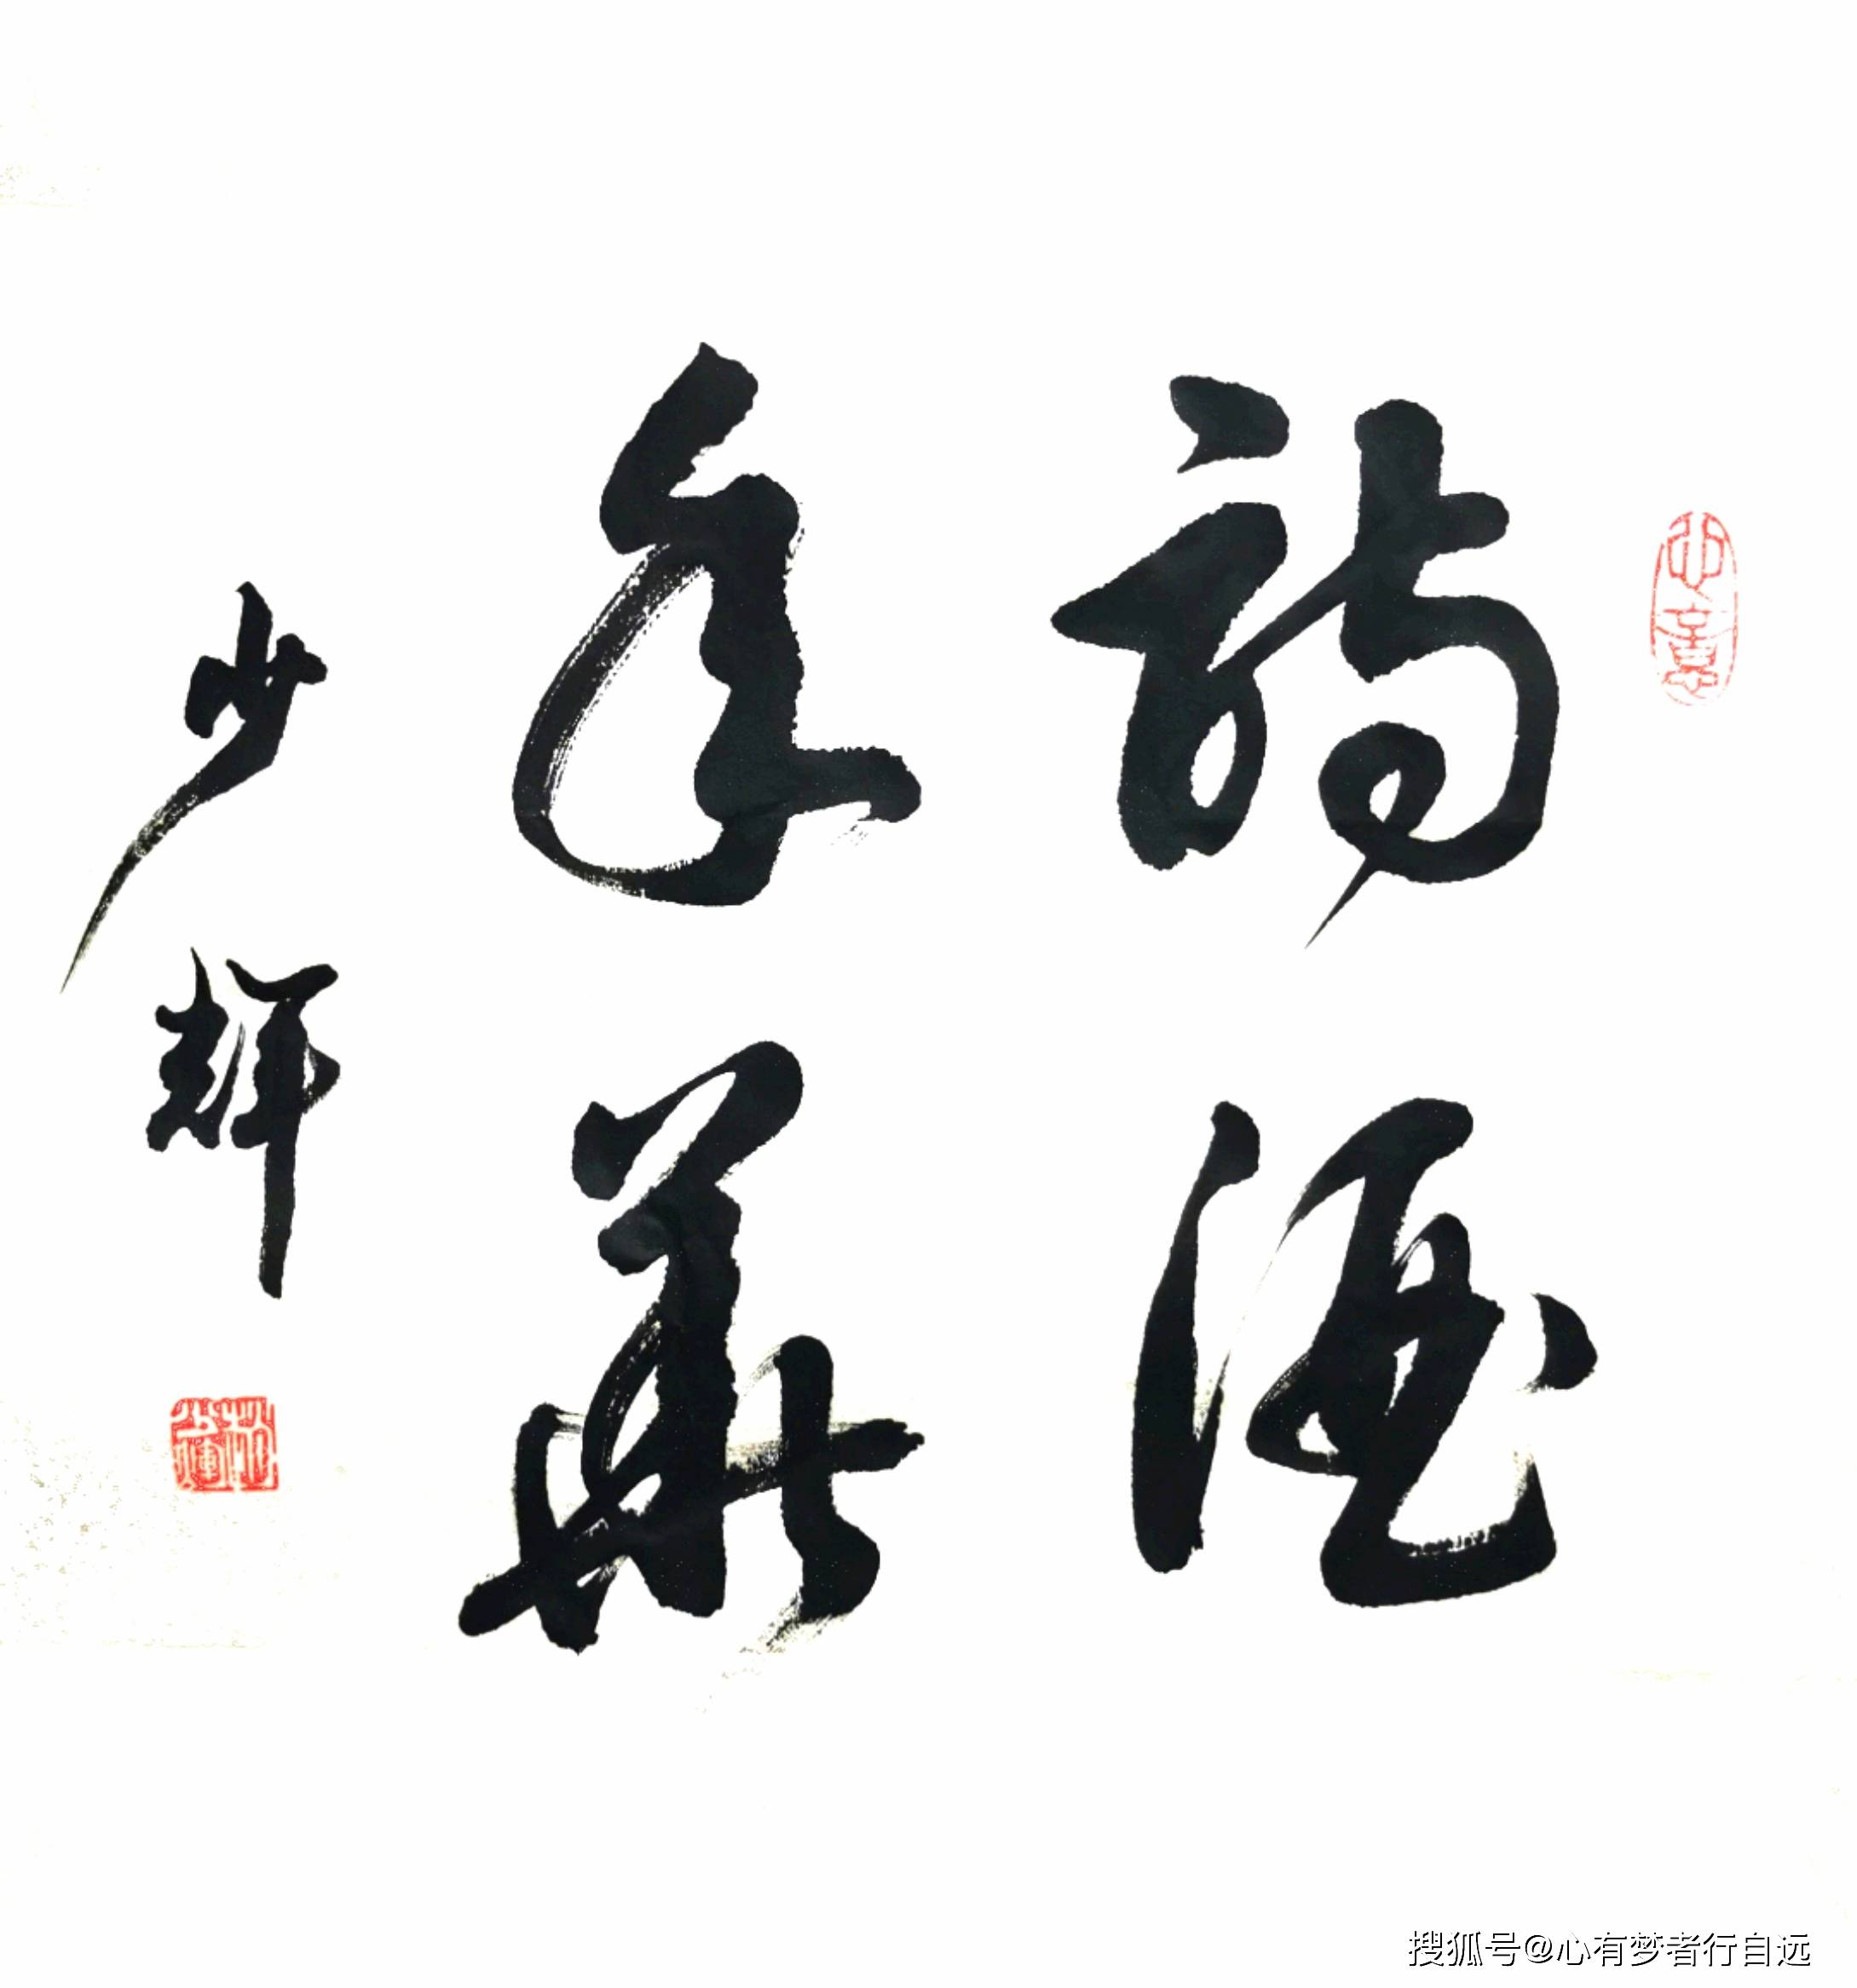 詩酒
年華
少輝
搜狐号@心有梦者行自远